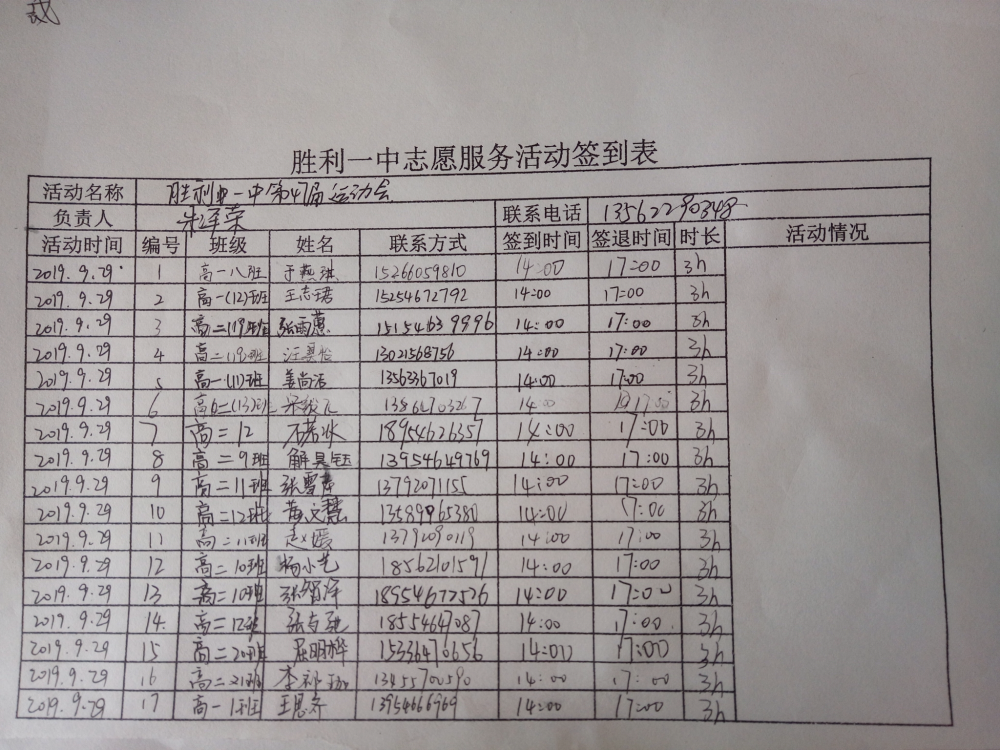 胜利一中志愿服务活动签到表
活动名称 胜利一中第47届运动会
负责人 联系电话 13562290348
活动时间 编号 班级 姓名 联系方式 签到时间 签退时间 时长 活动情况
2019.9.29 1 高一八班 于燕琪 15266059810 14:00 17:00 3h
2019.9.29 2 高一(12)班 王志珺 15254672792 14:00 17:00 3h
2019.9.29 3 张雨蕙 15154639996 14:00 17:00 3h
2019.9.29 4 13021568756 14:00 17:00 3h
2019.9.29 5 高一(11)班 姜尚洁 13563367019 14:00 17:00 3h
2019.9.29 6 14:00 17:00 3h
2019.9.29 7 高二12 石若冰 18954626357 14:00 17:00 3h
2019.9.29 8 高二9班 解昊钰 13954649769 14:00 17:00 3h
2019.9.29 9 高二11班 13792071155 14:00 17:00 3h
2019.9.29 10 高二12班 黄文慧 13589965380 14:00 17:00 3h
2019.9.29 11 赵媛 13792090119 14:00 17:00 3h
2019.9.29 12 高二10班 杨小艺 18562101591 14:00 17:00 3h
2019.9.29 13 高二10班 张智洋 18954672526 14:00 17:00 3h
2019.9.29 14 高二12班 18554647087 14:00 17:00 3h
2019.9.29 15 高二20班 屈明桦 15336470656 14:00 17:00 3h
2019.9.29 16 高二21班 13455700590 14:00 17:00 3h
2019.9.29 17 高一1班 王思齐 13954666969 14:00 17:00 3h